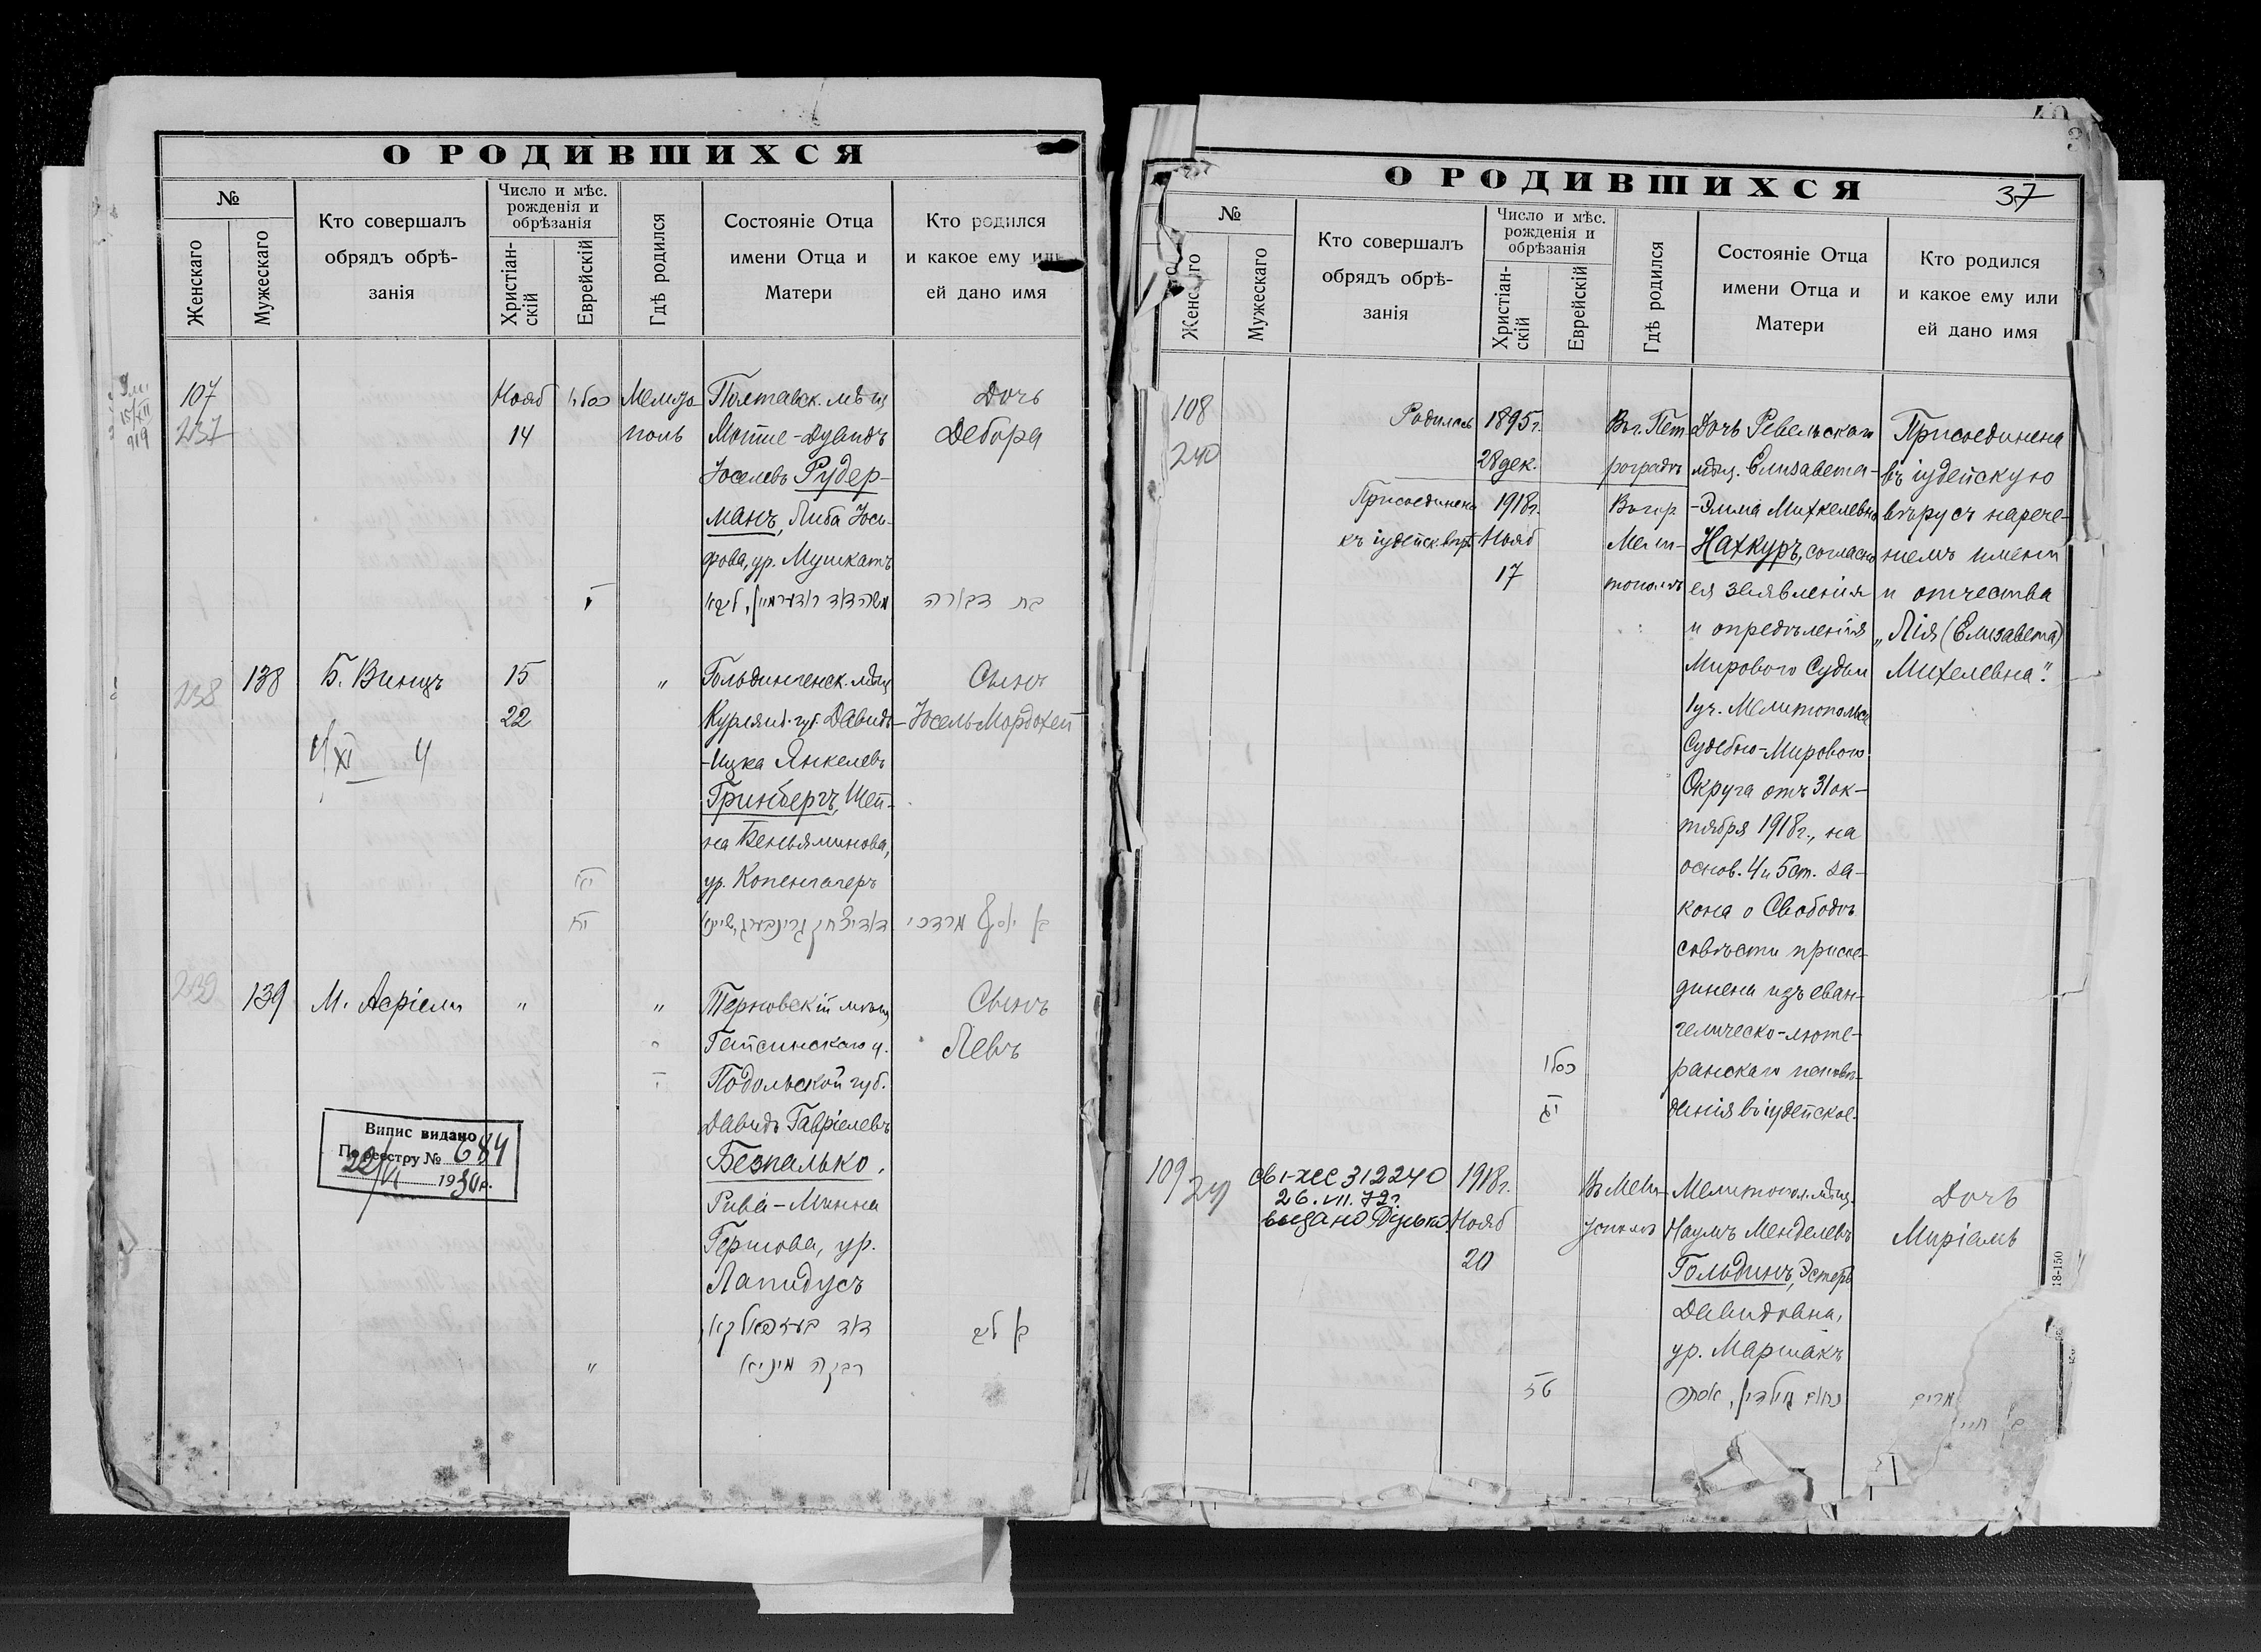 О РОДИВШИХСЯ
№
Женскаго
Мужескаго
Кто совершалъ
обрядъ обрѣ-
занія
Число и мѣс.
рожденія и
обрѣзанія
Христіан-
скій
Еврейскій
Гдѣ родился
Состояніе Отца
имени Отца и
Матери
Кто родился
и какое ему или
ей дано имя
107
237
Нояб
14
כסלו
י
Мелито
поль
Полтавск. мѣщ
Мовше-Дувидъ
Іоселевъ Рудер-
манъ, Либа Іось-
фова, ур. Мушкатъ
Дочь
Дебора
בת דבורה
238
138
Б. Винцъ
15
22
"
Гольдингенск. мѣщ
Курлянд. губ. Давидъ-
-Ицка Янкелевъ
Гринбергъ, Шей-
на Беньяминова,
ур. Копенгагеръ
Сынъ
Іосель Мордохей
בן יוסף מרדכי
יא
יח
239
139
М. Асріели
"
"
Терновскій мѣщ
Гайсинскаго у.
Подольской губ.
Давидъ Гавріелевъ
Безпалько,
Ривa-Минна
Гершова, ур.
Лапидусъ
רבקה מינא
"
Сынъ
Левъ
בן לב
Випис видано
По реєстру № 684
22/VI 1930 р.
О РОДИВШИХСЯ
37
№
Женскаго
Мужескаго
Кто совершалъ
обрядъ обрѣ-
занія
Число и мѣс.
рожденія и
обрѣзанія
Христіан-
скій
Еврейскій
Гдѣ родился
Состояніе Отца
имени Отца и
Матери
Кто родился
и какое ему или
ей дано имя
108
240
Родилась
1895 г.
28 дек.
Присоединена
къ іудейск. вѣрѣ
1918 г.
Нояб
17
כסלו
יג
Въ г. Пет
роградѣ
Въ гор
Мели-
тополѣ
Дочь Ревельскаго
мѣщ. Елизавета-
-Эмма Михкелевна
Нахкуръ, согласно
ея заявленія
и опредѣленія
Мирового Судьи
1 уч. Мелитопольск
Судебно-Мирового
Округа отъ 31 ок-
тября 1918 г., на
основ. 4 и 5 ст. за-
кона о Свободѣ
совѣсти присое-
динена изъ еван-
гелическо-люте-
ранскаго исповѣ-
данія въ іудейское.
Присоединена
въ іудейскую
вѣру съ нарече-
ніемъ имени
и отчества
"Лія (Елизавета)
Михелевна".
109
241
св I-ХСС 312240
26.VII.72г.
выдано
1918 г.
Нояб
20
טז
Въ Мели-
тополѣ
Мелитопол. мѣщ.
Наумъ Менделевъ
Гольдинъ, Эстеръ
Давидовна,
ур. Маршакъ
נחום גולדין, אסתר
Дочь
Миріамъ
מרים
18-150